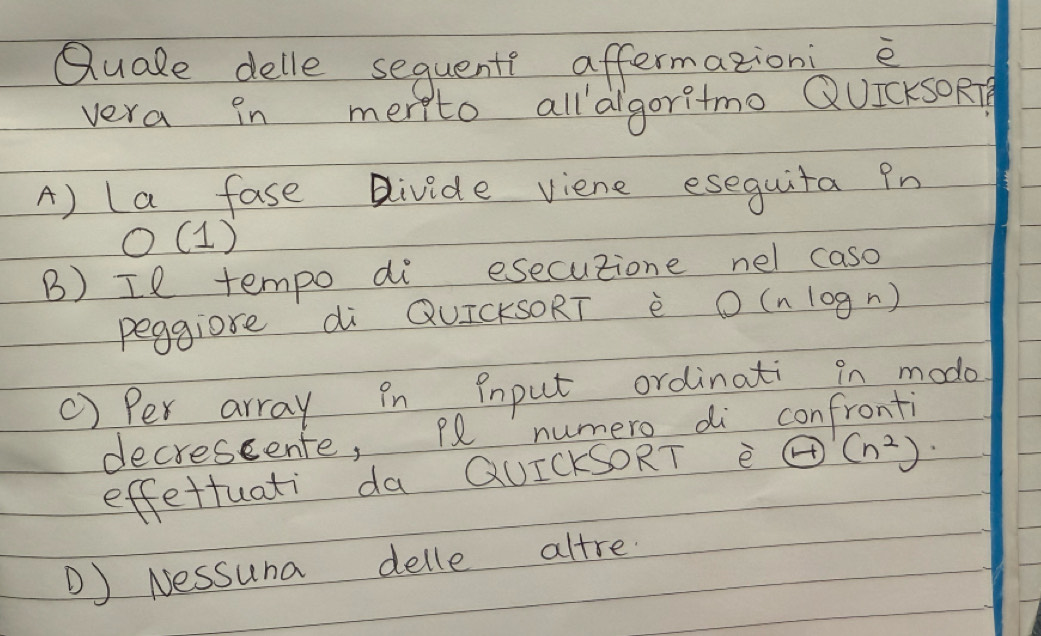 Quale delle seguenti affermazioni è
vera in merito all'algoritmo QUICKSORT?
A) La fase Divide viene eseguita in
O(1)
B) Il tempo di esecuzione nel caso
peggiore di QUICKSORT è O(n log n)
C) Per array in input ordinati in modo
decrescente, il numero di confronti
effettuati da QUICKSORT è Θ(n²).
D) Nessuna delle altre.